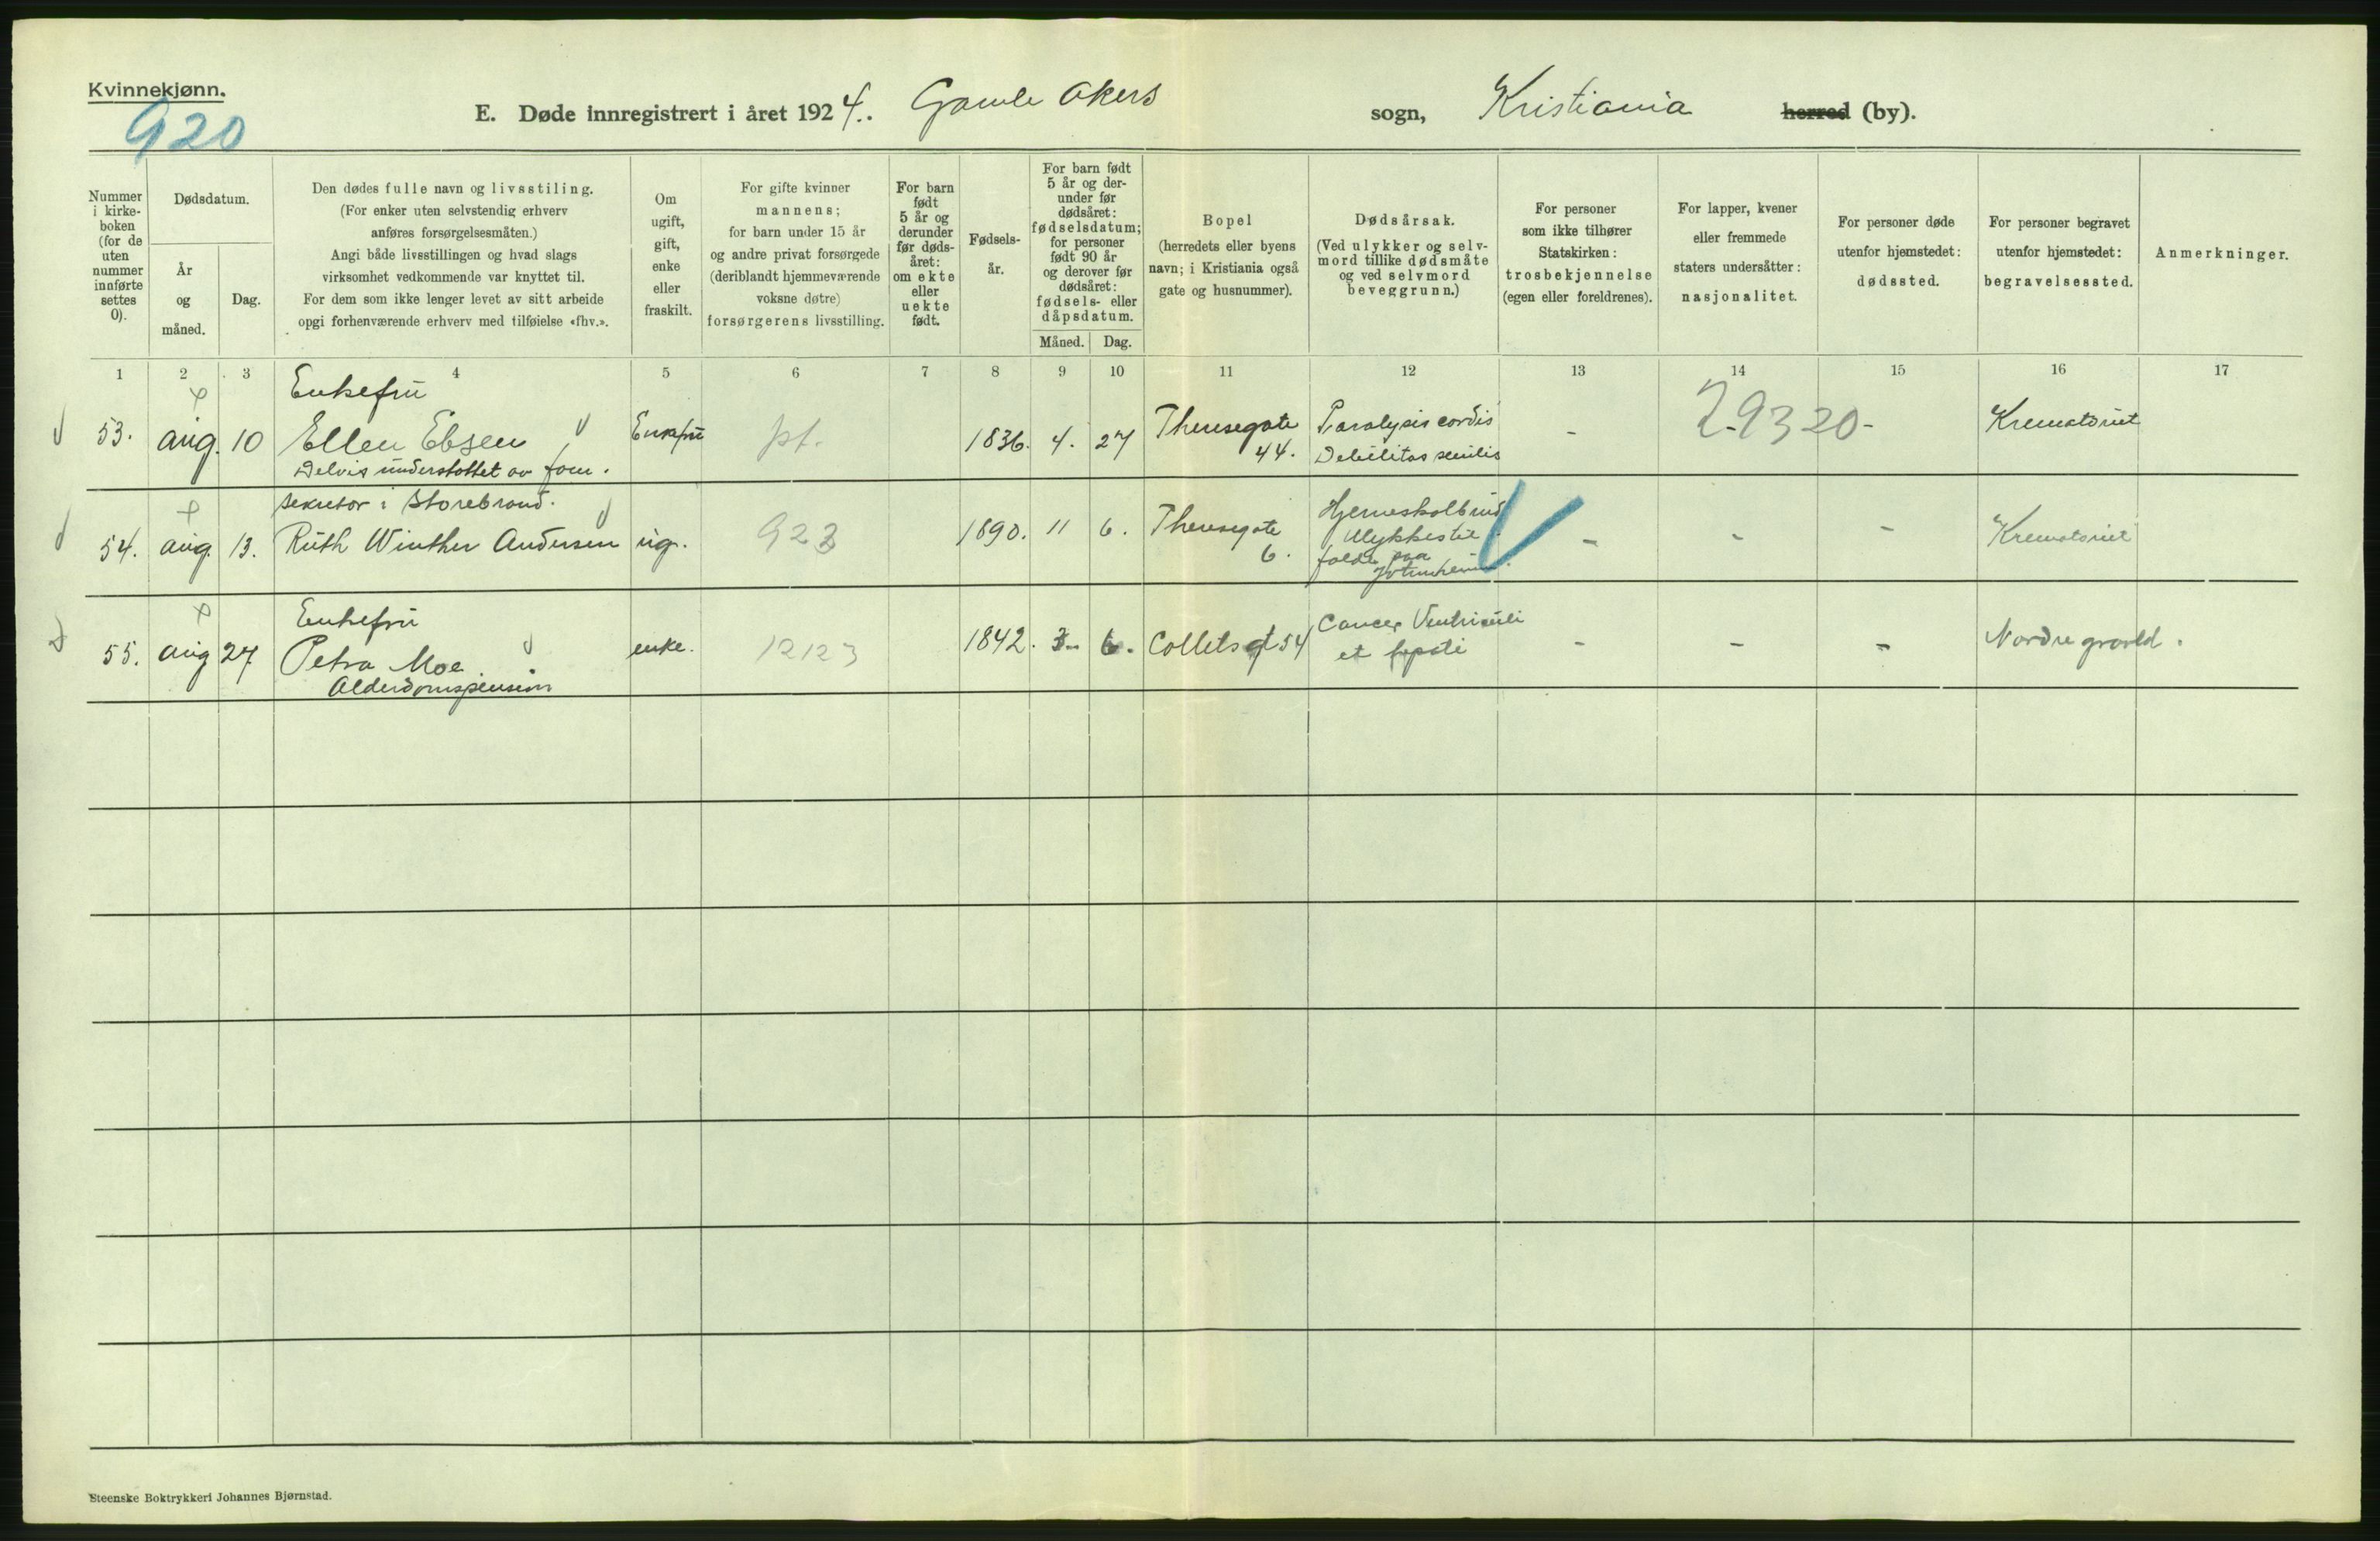 Kvinnekjønn.
920
E. Døde innregistrert i året 1924. Gamle Akers sogn, Kristiania herred (by).
Nummer i kirke- boken (for de uten nummer innførte settes 0).
Dødsdatum.
År og måned.
Dag.
Den dødes fulle navn og livsstiling.
(For enker uten selvstendig erhverv
anføres forsørgelsesmåten.)
Angi både livsstillingen og hvad slags
virksomhet vedkommende var knyttet til.
For dem som ikke lenger levet av sitt arbeide
opgi forhenværende erhverv med tilføielse «fhv.».
Om ugift, gift, enke eller fraskilt.
For gifte kvinner
mannens;
for barn under 15 år
og andre privat forsørgede
(deriblandt hjemmeværende
voksne døtre)
forsørgerens livsstilling.
For barn født 5 år og derunder før døds- året: om ekte eller uekte født.
Fødsels- år.
For barn født
5 år og der-
under før
dødsåret:
fødselsdatum;
for personer
født 90 år
og derover før
dødsåret:
fødsels- eller
dåpsdatum.
Måned.
Dag.
Bopel
(herredets eller byens
navn; i Kristiania også
gate og husnummer).
Dødsårsak.
(Ved ulykker og selv-
mord tillike dødsmåte
og ved selvmord
beveggrunn.)
For personer
som ikke tilhører
Statskirken:
trosbekjennelse
(egen eller foreldrenes).
For lapper, kvener
eller fremmede
staters undersåtter:
nasjonalitet.
For personer døde
utenfor hjemstedet:
dødssted.
For personer begravet
utenfor hjemstedet:
begravelsessted.
Anmerkninger.
1 2 3 4 5 6 7 8 9 10 11 12 13 14 15 16 17
Enkefru
53. aug. 10 Ellen Ebsen Enkefru pf. 1836. 4. 27 Theresegate 44. Paralysis cordis - 29320- Krematoriet
Delvis understøttet av fam. Debilitas senilis
sekretær i Storebrand.
54. aug. 13. Ruth Winther Andersen ug. 923 1890. 11 6. Theresegate 6. Hjerneskalbrud - - - Krematoriet
Ulykkestil
fælde paa
Jotunheimen
Enkefru
55. aug 27 Petra Moe enke. 12123 1842. 3. 6. Collets gt 54 Cancer Ventriculi - - - Nordre gravld.
Alderdomspension et hepatis
Steenske Boktrykkeri Johannes Bjørnstad.